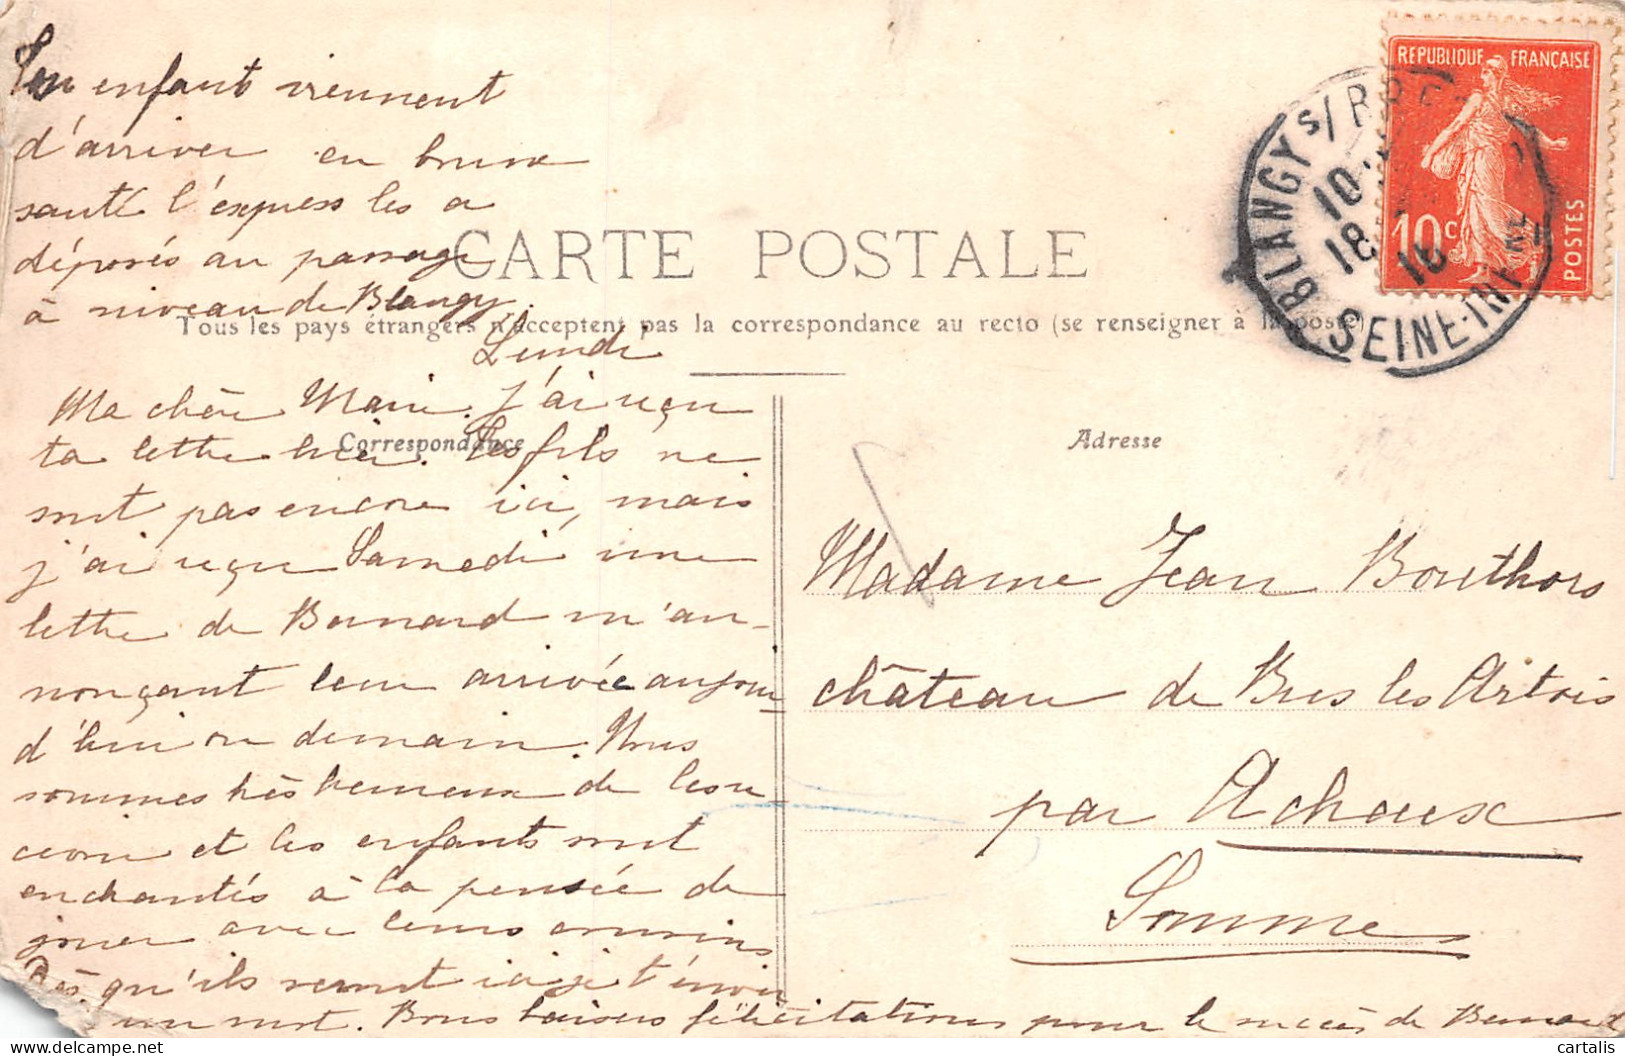 Les enfants viennent
d'arriver en bonne
santé l'express les a
déposés au passage
à niveau de Blangy.
CARTE POSTALE
Tous les pays étrangers n'acceptent pas la correspondance au recto (se renseigner à la poste)
Lundi
Ma chère Marie. J'ai reçu
ta lettre hier. Les fils ne
sont pas encore ici, mais
j'ai reçu Samedi une
lettre de Bernard m'an-
nonçant leur arrivée aujour
d'hui ou demain. Nous
sommes très heureux de les
et les enfants sont
enchantés à la pensée de
jouer avec leurs cousins
Dès qu'ils seront ici je t'envoie
un mot. Bons baisers félicitations pour le succès de Bernard
Correspondance
Adresse
Madame Jean Bouthors
château de Bus les Artois
par Acheux
Somme
REPUBLIQUE FRANÇAISE
10c
POSTES
BLANGY S/ BRE
10
18
16
SEINE-INF
cartalis